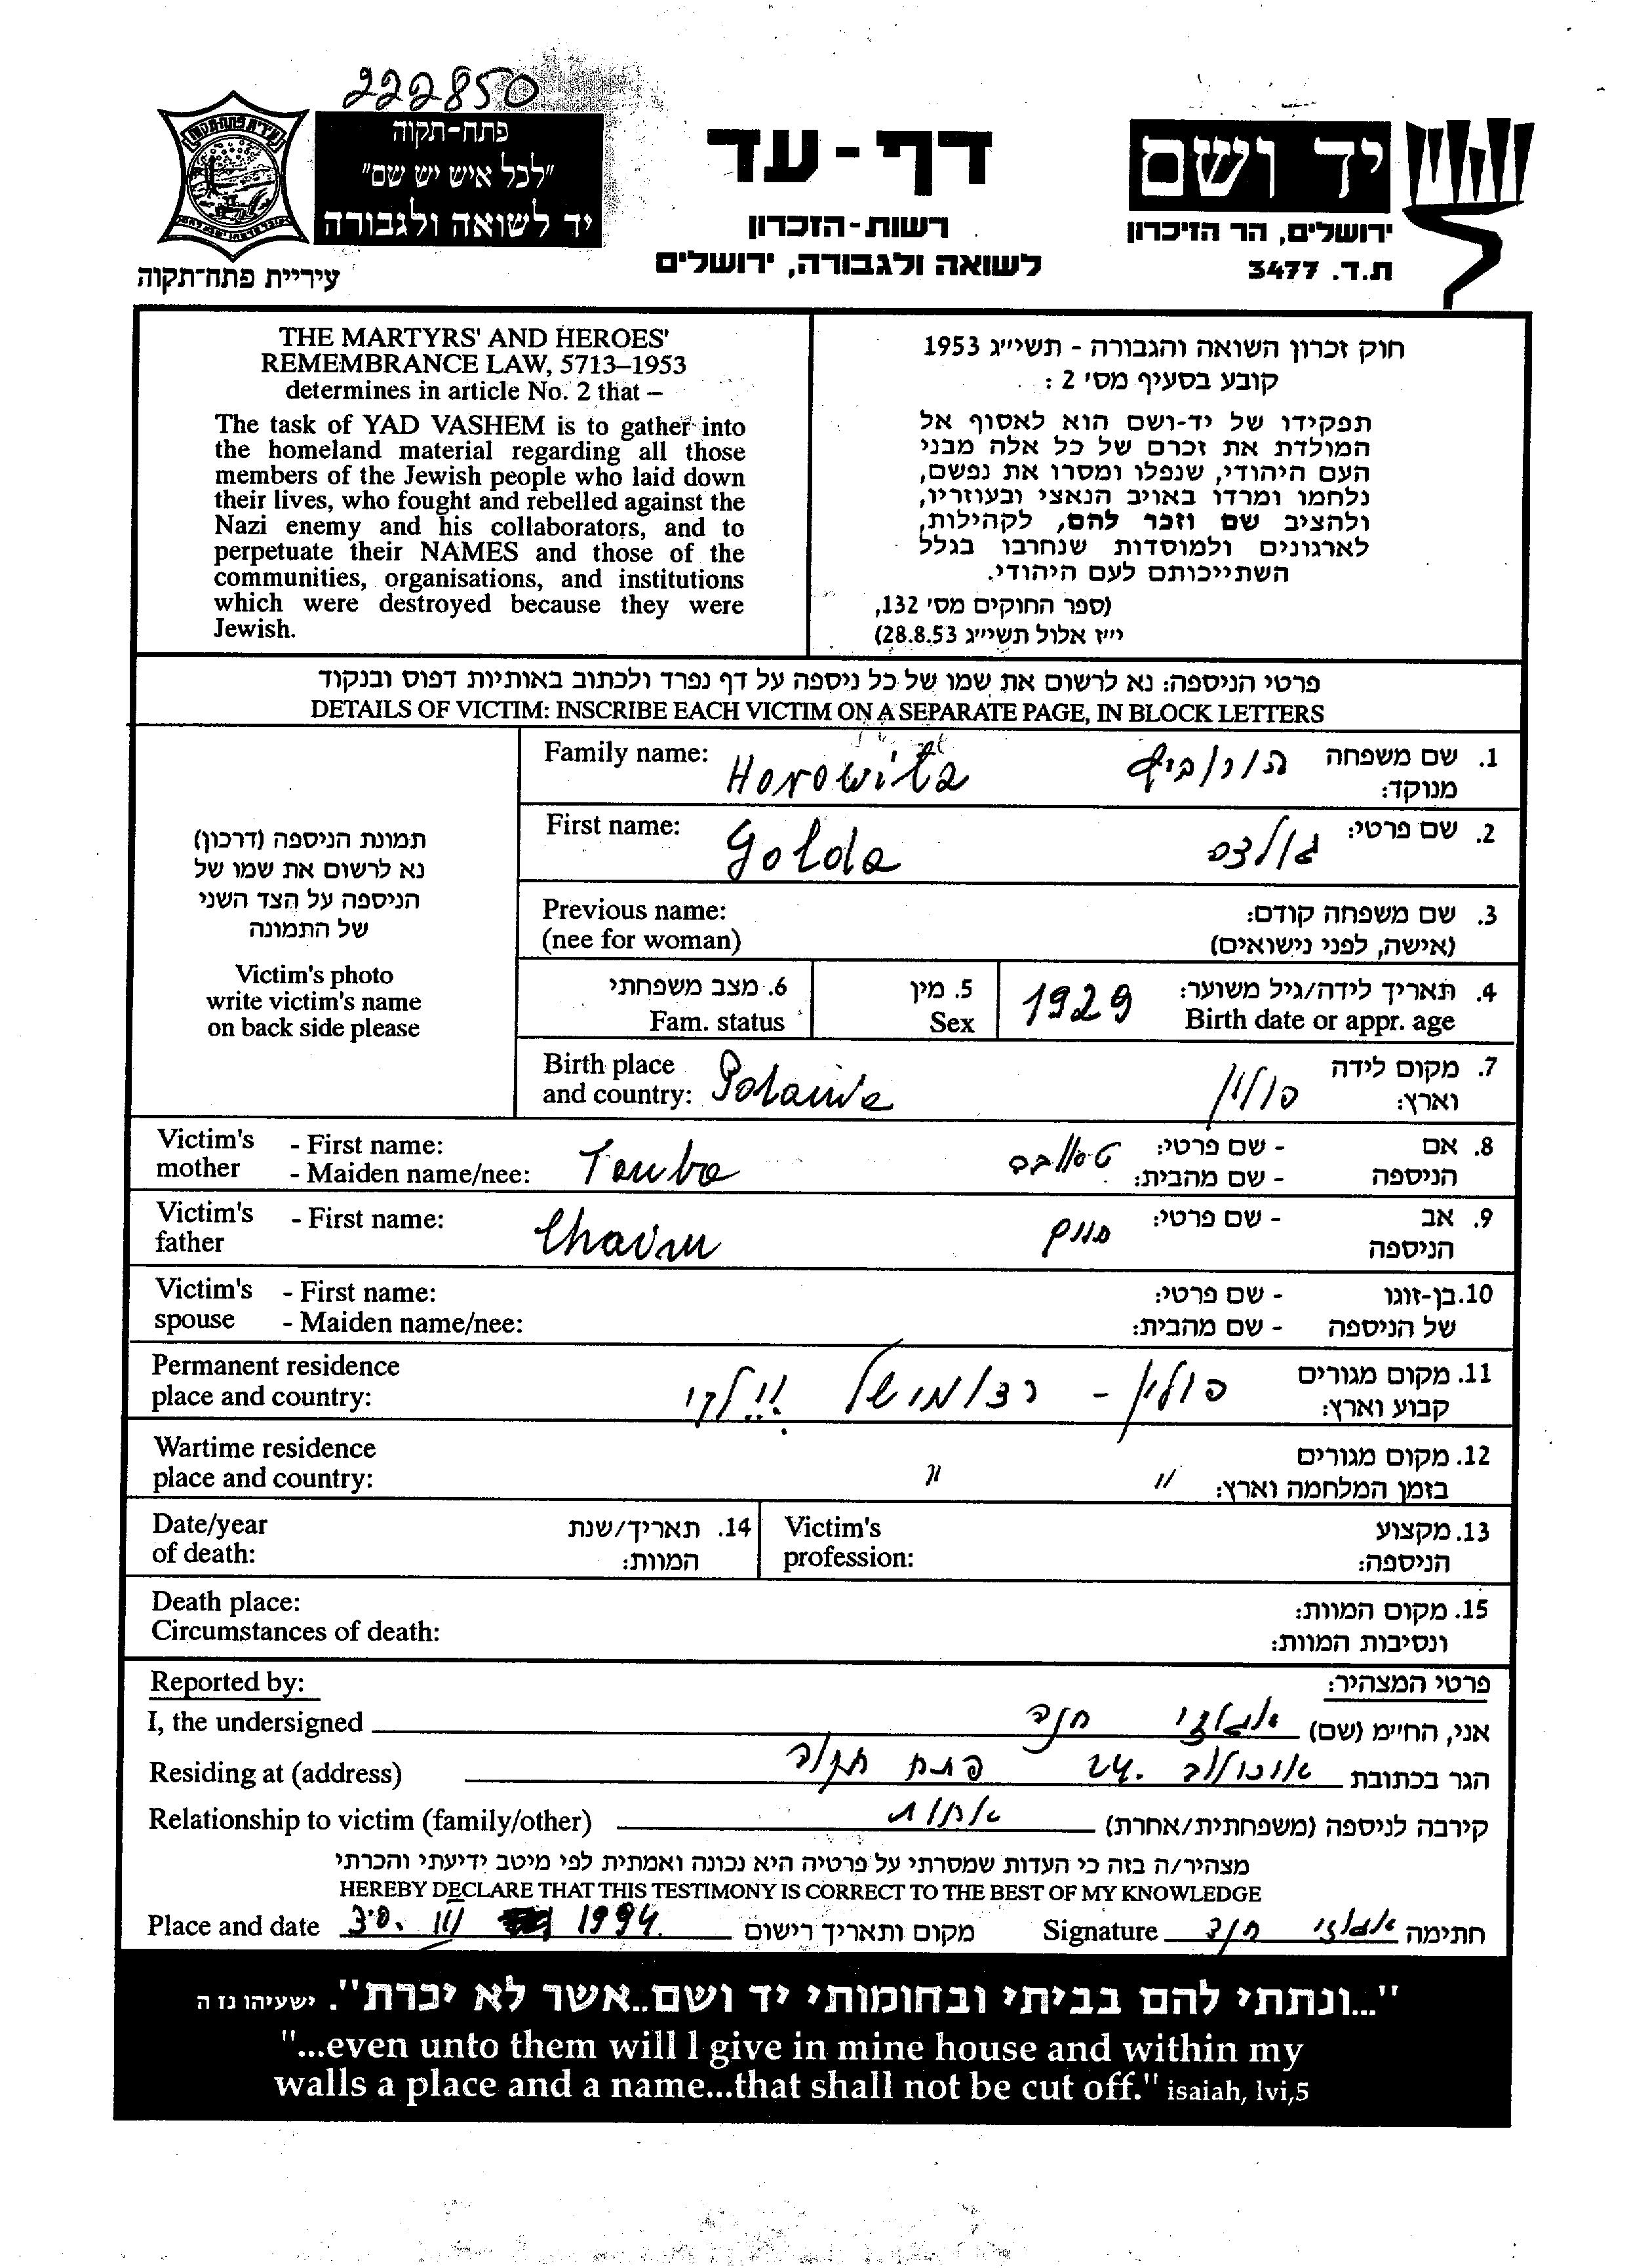 222850
פתח-תקוה
"לכל איש יש שם"
יד לשואה ולגבורה
עיריית פתח-תקוה
דף-עד
רשות-הזכרון
לשואה ולגבורה, ירושלים
יד ושם
ירושלים, הר הזיכרון
ת.ד. 3477
THE MARTYRS' AND HEROES'
REMEMBRANCE LAW, 5713–1953
determines in article No. 2 that –
The task of YAD VASHEM is to gather into
the homeland material regarding all those
members of the Jewish people who laid down
their lives, who fought and rebelled against the
Nazi enemy and his collaborators, and to
perpetuate their NAMES and those of the
communities, organisations, and institutions
which were destroyed because they were
Jewish.
חוק זכרון השואה והגבורה - תשי״ג 1953
קובע בסעיף מס׳ 2 :
תפקידו של יד-ושם הוא לאסוף אל
המולדת את זכרם של כל אלה מבני
העם היהודי, שנפלו ומסרו את נפשם,
נלחמו ומרדו באויב הנאצי ובעוזריו,
ולהציב שם וזכר להם, לקהילות,
לארגונים ולמוסדות שנחרבו בגלל
השתייכותם לעם היהודי.
(ספר החוקים מס׳ 132,
י״ז אלול תשי״ג 28.8.53)
פרטי הניספה: נא לרשום את שמו של כל ניספה על דף נפרד ולכתוב באותיות דפוס ובנקוד
DETAILS OF VICTIM: INSCRIBE EACH VICTIM ON A SEPARATE PAGE, IN BLOCK LETTERS
תמונת הניספה (דרכון)
נא לרשום את שמו של
הניספה על הצד השני
של התמונה
Victim's photo
write victim's name
on back side please
Family name: Horowitz הורוביץ 1. שם משפחה
מנוקד:
First name: Golda גולדה 2. שם פרטי:
Previous name: 3. שם משפחה קודם:
(nee for woman) (אישה, לפני נישואים)
6. מצב משפחתי 5. מין 1929 4. תאריך לידה/גיל משוער:
Fam. status Sex Birth date or appr. age
Birth place 7. מקום לידה
and country: פולין וארץ:
Victim's - First name: - שם פרטי: 8. אם
mother - Maiden name/nee: Tauba - שם מהבית: הניספה
Victim's - First name: Chaim חיים - שם פרטי: 9. אב
father הניספה
Victim's - First name: - שם פרטי: 10. בן-זוגו
spouse - Maiden name/nee: - שם מהבית: של הניספה
Permanent residence 11. מקום מגורים
place and country: פולין - קבוע וארץ:
Wartime residence 12. מקום מגורים
place and country: " " בזמן המלחמה וארץ:
Date/year 14. תאריך/שנת Victim's 13. מקצוע
of death: המוות: profession: הניספה:
Death place: 15. מקום המוות:
Circumstances of death: ונסיבות המוות:
Reported by: פרטי המצהיר:
I, the undersigned חנה אני, החיימ (שם)
Residing at (address) 24. פתח תקוה הגר בכתובת
Relationship to victim (family/other) אחות קירבה לניספה (משפחתית/אחרת)
מצהיר/ה בזה כי העדות שמסרתי על פרטיה היא נכונה ואמתית לפי מיטב ידיעתי והכרתי
HEREBY DECLARE THAT THIS TESTIMONY IS CORRECT TO THE BEST OF MY KNOWLEDGE
Place and date III 1994. מקום ותאריך רישום Signature חנה חתימה
"...ונתתי להם בביתי ובחומותי יד ושם..אשר לא יכרת". ישעיהו נז ה
"...even unto them will I give in mine house and within my
walls a place and a name...that shall not be cut off." isaiah, lvi,5